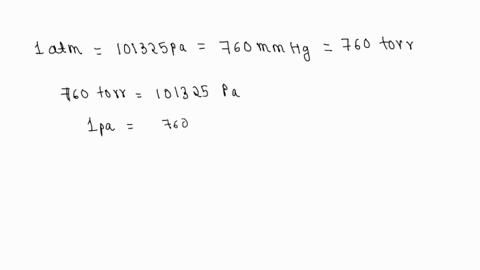 1 atm = 101325 pa = 760 mm Hg = 760 torr
760 torr = 101325 Pa
1 pa = 760